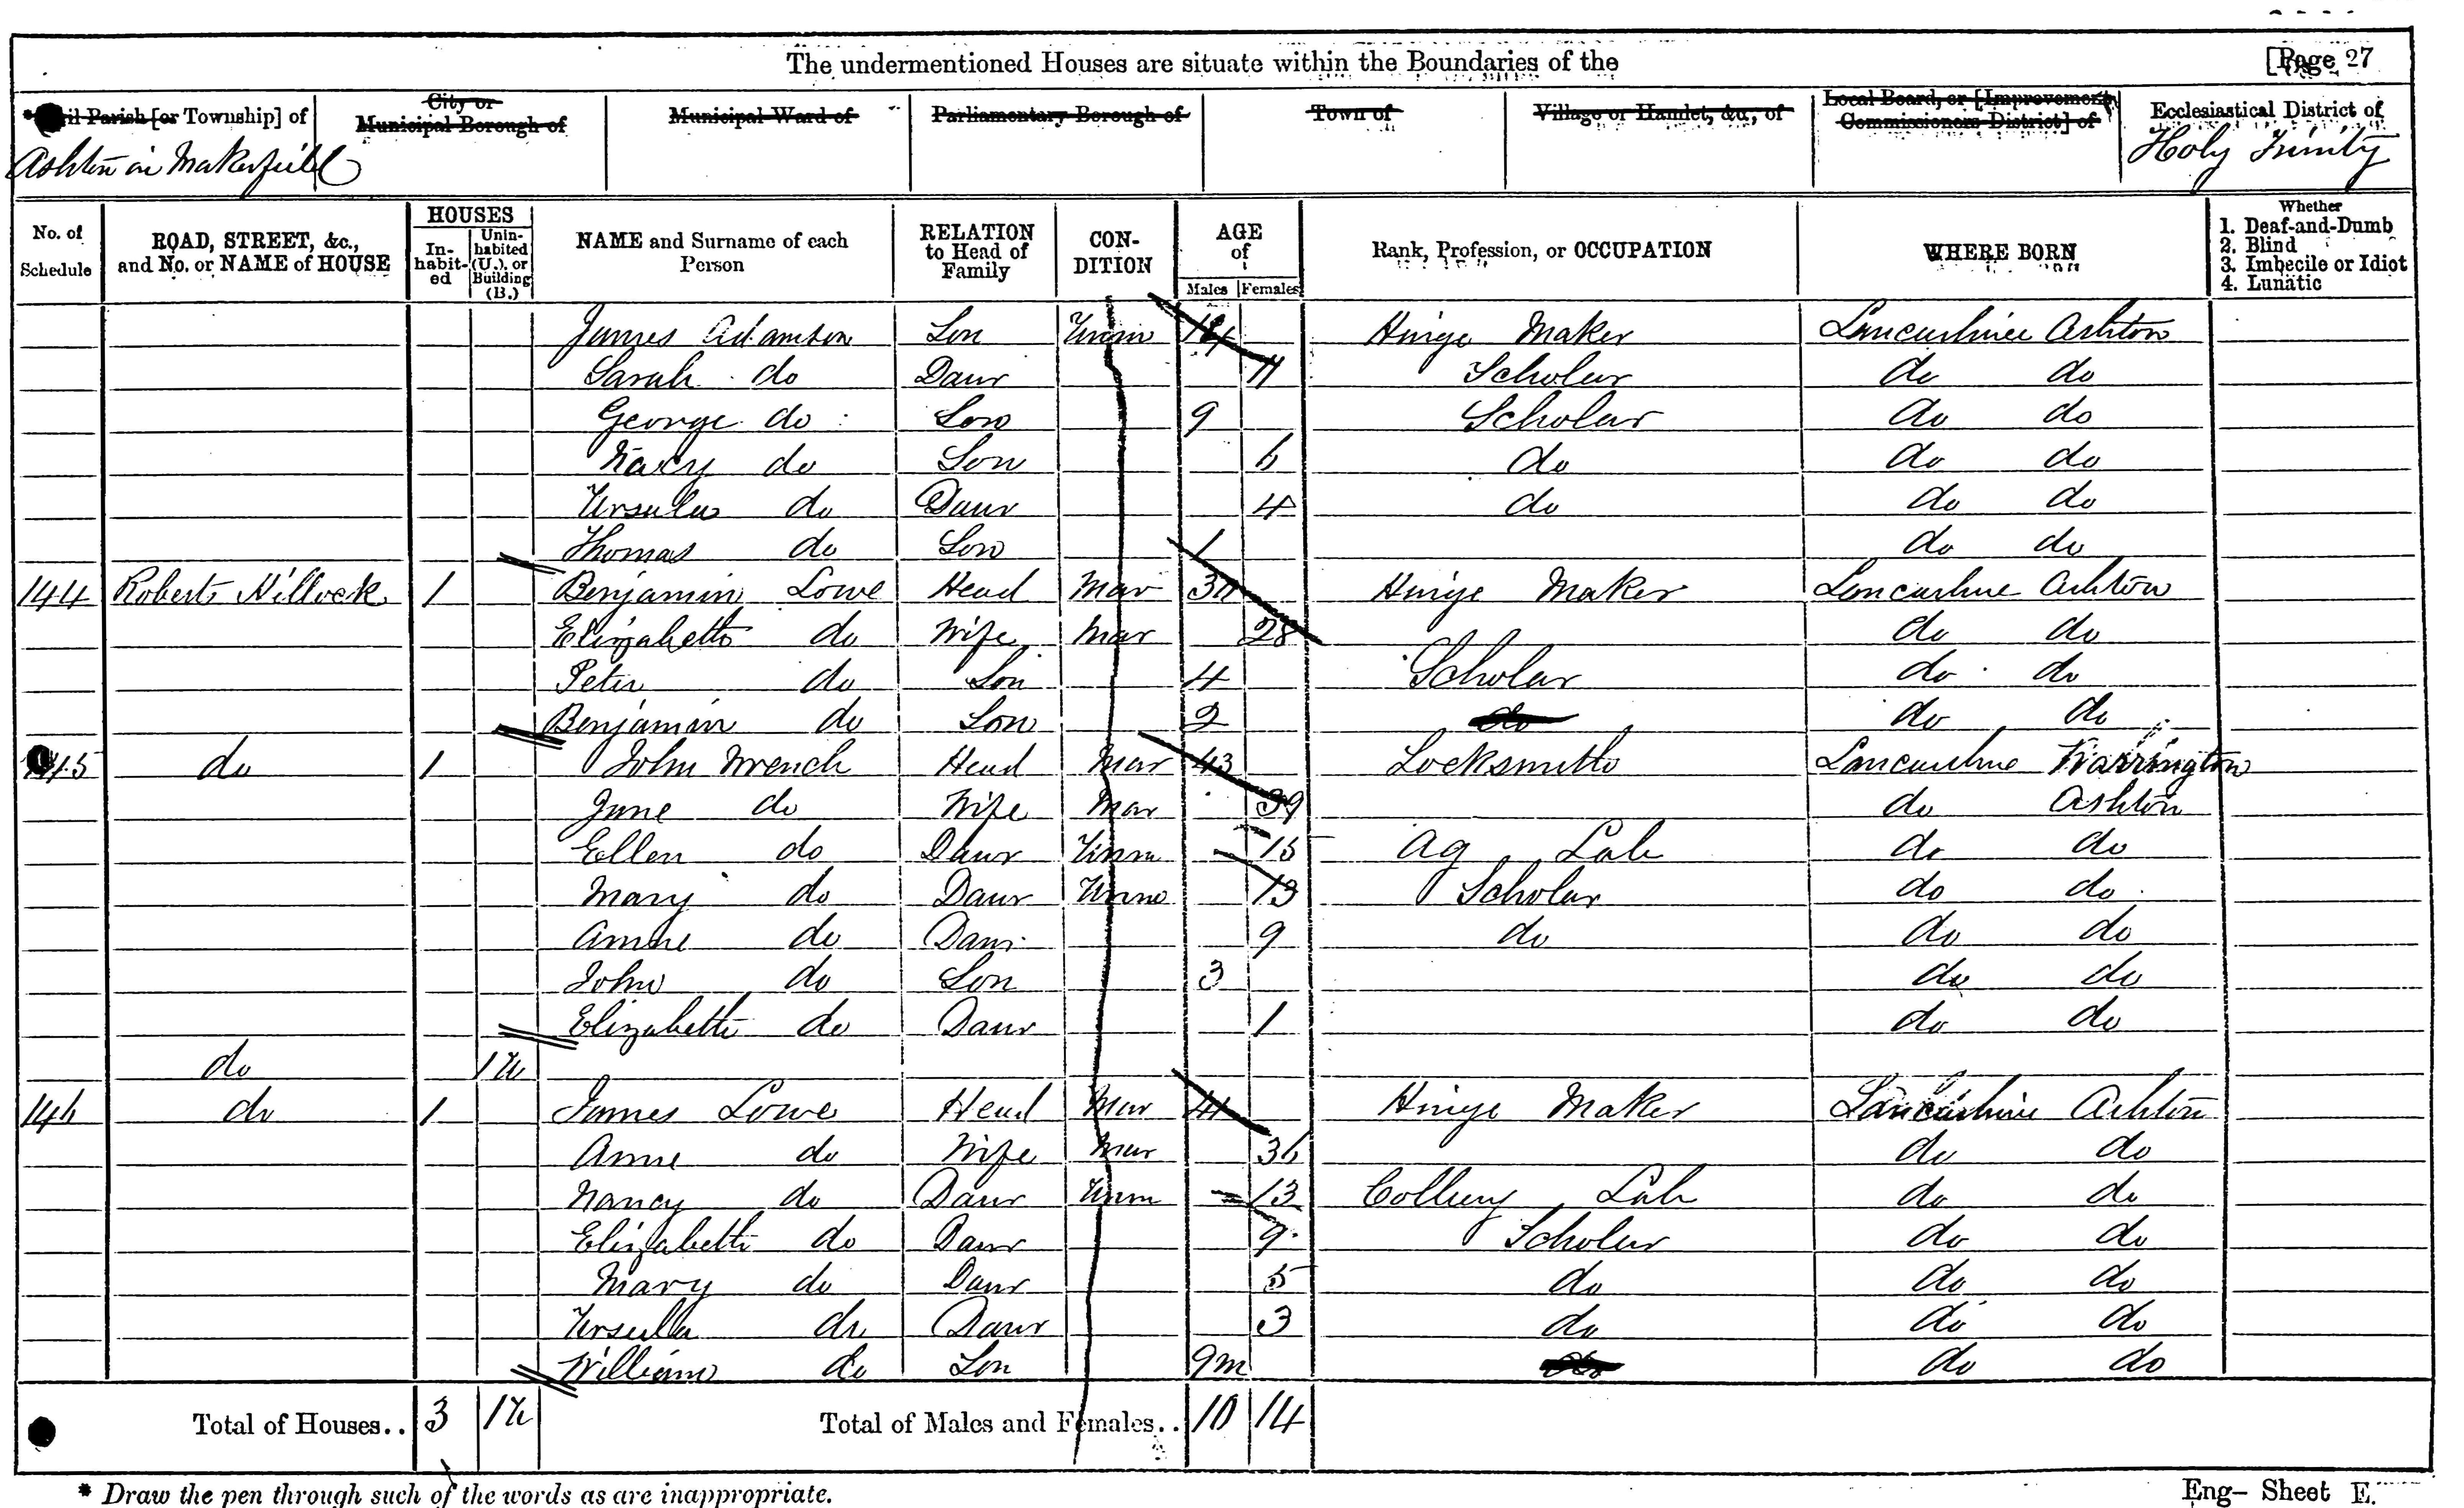 The undermentioned Houses are situate within the Boundaries of the [Page 27
Civil Parish [or Township] of City or Municipal Borough of Municipal Ward of Parliamentary Borough of Town of Village or Hamlet, &c., of Local Board, or [Improvement Commissioners District] of Ecclesiastical District of
Ashton in Makerfield Holy Trinity
No. of Schedule ROAD, STREET, &c., and No. or NAME of HOUSE HOUSES Inhabited Uninhabited (U.), or Building (B.) NAME and Surname of each Person RELATION to Head of Family CONDITION AGE of Males Females Rank, Profession, or OCCUPATION WHERE BORN Whether 1. Deaf-and-Dumb 2. Blind 3. Imbecile or Idiot 4. Lunatic
James Adamson Son Unm Hinge Maker Lancashire Ashton
Sarah do Daur 11 Scholar do do
George do Son 9 Scholar do do
do Son 6 do do do
Ursula do Daur 4 do do do
Thomas do Son 1 do do
144 Roberts Hillock 1 Benjamin Lowe Head Mar Hinge Maker Lancashire Ashton
Elizabeth do Wife Mar 28 do do
Peter do Son 4 Scholar do do
Benjamin do Son 2 do do do
145 do 1 John Wrench Head Mar 43 Locksmith Lancashire Warrington
Jane do Wife Mar 39 do Ashton
Ellen do Daur Unm 15 Ag Lab do do
Mary do Daur Unm 13 Scholar do do
Anne do Daur 9 do do do
John do Son 3 do do
Elizabeth do Daur 1 do do
do 1U
146 do 1 James Lowe Head Mar 41 Hinge Maker Lancashire Ashton
Anne do Wife Mar 36 do do
Nancy do Daur Unm 13 Colliery Lab do do
Elizabeth do Daur 9 Scholar do do
Mary do Daur 5 do do do
Ursula do Daur 3 do do do
William do Son 9m do do do
Total of Houses.. 3 1U Total of Males and Females.. 10 14
* Draw the pen through such of the words as are inappropriate. Eng- Sheet E.